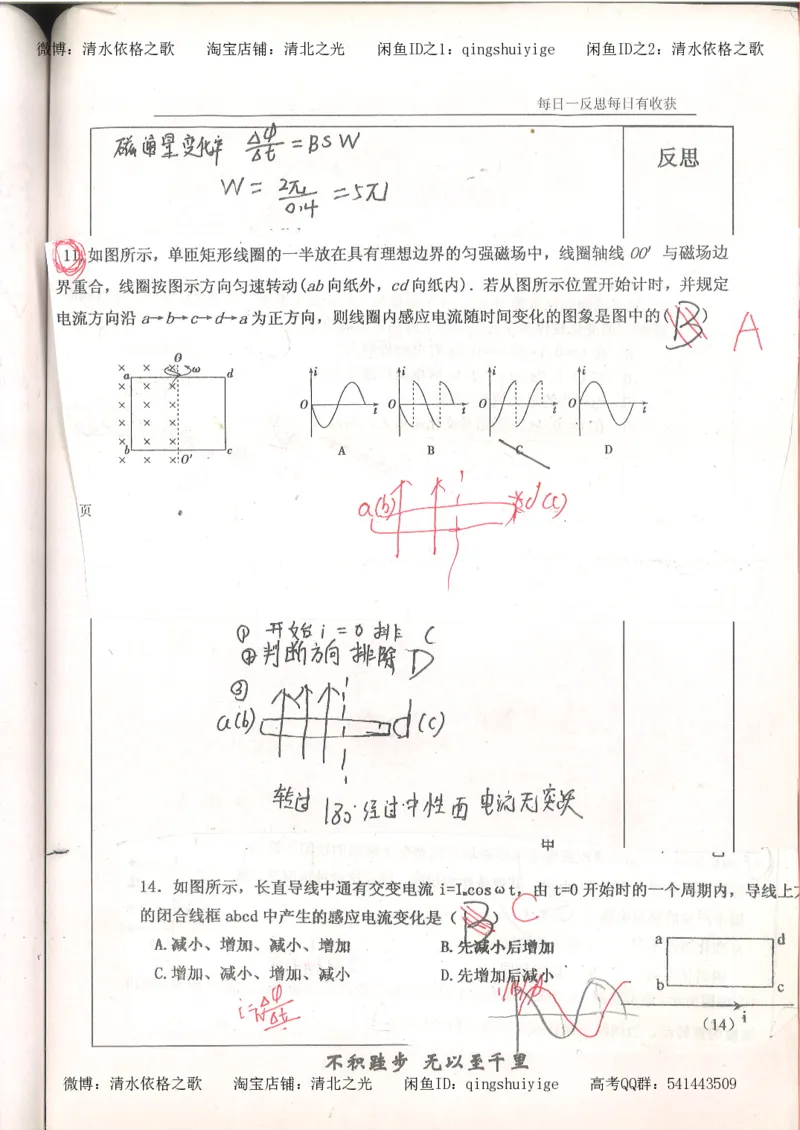 微博：清水依格之歌　淘宝店铺：清北之光　闲鱼ID之1：qingshuiyige　闲鱼ID之2：清水依格之歌
每日一反思每日有收获
磁通量变化率 Δφ/Δt = BSW
反思
W = 2π/0.4 = 5π
11.如图所示，单匝矩形线圈的一半放在具有理想边界的匀强磁场中，线圈轴线 OO′ 与磁场边
界重合，线圈按图示方向匀速转动(ab向纸外，cd向纸内)．若从图所示位置开始计时，并规定
电流方向沿 a→b→c→d→a 为正方向，则线圈内感应电流随时间变化的图象是图中的（ B ） A
O ω
a d
b c
O′
i O t i O t i O t i O t
A B C D
页
a(b) d(c)
① 开始 i = 0 排 C
② 判断方向 排除 D
③
a(b) d(c)
转过 180° 经过中性面 电流无突变
甲
14．如图所示，长直导线中通有交变电流 i=Iₘcosωt，由 t=0 开始时的一个周期内，导线上方
的闭合线框 abcd 中产生的感应电流变化是（ B ） C
A.减小、增加、减小、增加　B.先减小后增加
C.增加、减小、增加、减小　D.先增加后减小
a d
b c
i
(14)
i = Δφ/Δt
不积跬步 无以至千里
微博：清水依格之歌　淘宝店铺：清北之光　闲鱼ID：qingshuiyige　高考QQ群：541443509